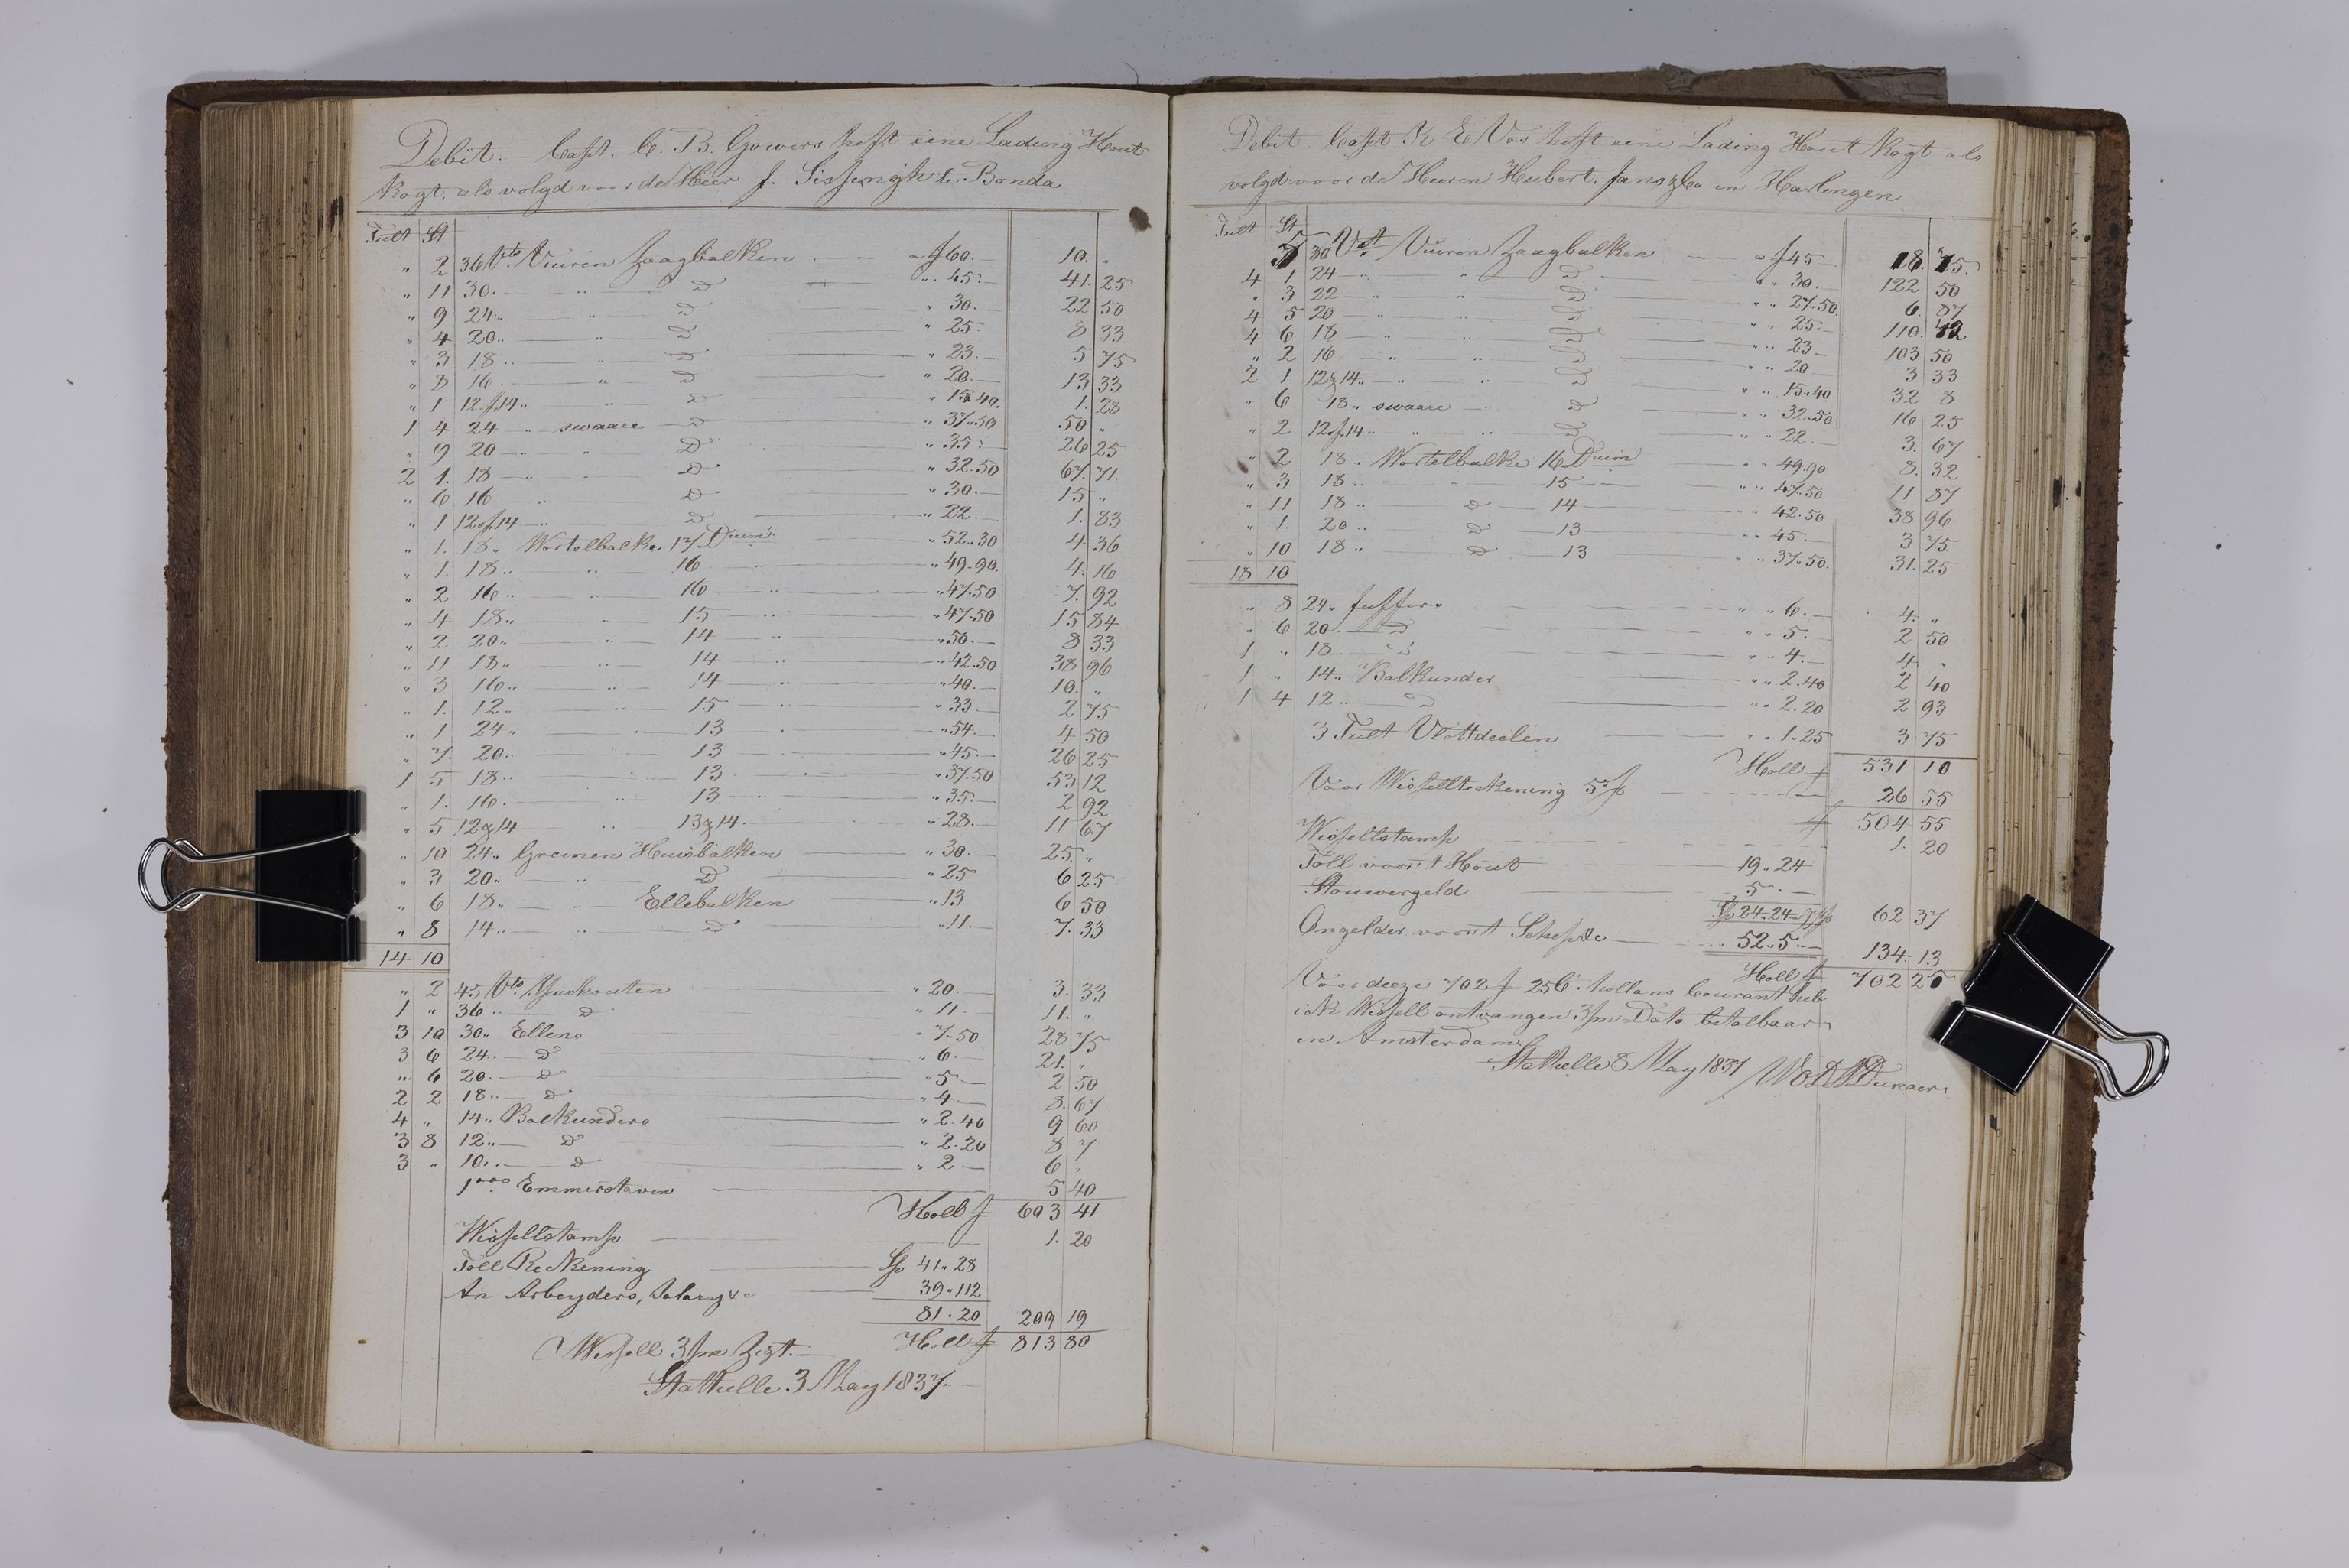 Debit. Capt. C. B. Gowers heft eine Lading Hout
kogt, als volgd voor de Heer J. Sissingh te Bonda
Tult St
" 2 36 Vts Vuiren Zaagbalken " f 60.— 10. "
" 11 30. " D " 45.— 41. 25
" 9 24 " " D " 30. 22 50
" 4 20 " " D " 25. 8 33
" 3 18 " " D " 23.— 5 75
" 8 16 " " D " 20.— 13 33
" 1 12 f 14 " " D " 15.40. 1. 28
1 4 24 " swaare D " 37.50 50 "
" 9 20 " " D " 35 26 25
2 1. 18 " " D " 32.50 67. 71.
" 6 16 " D " 30.— 15 "
" 1 12 f 14 " D " 22.— 1. 83
" 1. 18 " Wortelbalke 17 Duim " 52.30 4 36
" 1. 18 " " 16 " 49.90. 4. 16
" 2 16 " " 16 " " 47.50 7. 92
" 4 18 " " 15 " " 47.50 15 84
" 2. 20 " " 14 " " 50.— 8 33
" 11 18 " " 14 " " 42.50 38 96
" 3 16 " " 14 " " 40.— 10. "
" 1. 12 " " 15 " 33 2 75
" 1 24 " " 13 " 54.— 4 50
" 7. 20 " " 13 " 45.— 26 25
1 5 18 " " 13 " 37.50 53 12
" 1. 16. " 13 " " 35.— 2 92
" 5 12 & 14 " 13 & 14. " 28.— 11 67
" 10 24 " Greinen Huisbalken " 30.— 25. "
" 3 20 " " D " 25 6 25
" 6 18 " " Ellebalken " 13 6 50
" 8 14 " " D " 11.— 7. 33
14 10
" 2 45 Vts Juckouten " 20.— 3. 33
1 " 36 " D " 11.— 11. "
3 10 30 " Ellens " 7.50 28 75
3 6 24 " D " 6.— 21. "
" 6 20. D " 5.— 2 50
2 2 18 " D " 4.— 8. 67
4 " 14 " Balkunders " 2.40 9 60
3 8 12 " D " 2.20 8 7
3 " 10 " D " 2 — 6 "
1000 Emmerstaven 5 40
Holl f 603 41
Wissellstamp 1. 20
Toll Rekening Sp 41 " 28
An Arbeyders, Salary &c 39 " 112
81 . 20 209 19
Wissell 3/m Zigt.— Holl f 813 80
Stathelle 3 May 1837.
Debit Capt R E Vos heft eene Lading Hout kogt als
volgd voor de Heeren Hubert, Jans & Co in Harlingen
Tult St
5 30 Vtt Vuiren Zaagbalken " f 45 — 18. 75.
4 1 24 " " D " " 30.— 122 50
" 3 22 " " D " " 27.50. 6. 87
4 5 20 " " D " " 25.— 110. 42
4 6 18 " " D " " 23 — 103 50
" 2 16 " " D " " 20 — 3 33
2 1. 12 & 14 " " " D " " 15.40 32 8
" 6 18 " swaare " D " " 32.50 16 25
" 2 12 f 14 " " " D " " 22.— 3. 67
" 2 18 " Wortelbalke 16 Duim " " 49.90 8. 32
" 3 18 " " 15 " " 47.50 11 87
" 11 18 " D 14 " " 42.50 38 96
" 1. 20 " D 13 " " 45.— 3 75
" 10 18 " D 13 " " 37.50. 31. 25
18 10
" 8 24 " Juffers " " 6.— 4. "
" 6 20. D " " 5.— 2 50
1 " 18. D " " 4.— 4 "
1 " 14 " Balkunder " " 2.40 2 40
1 4 12 " D " " 2.20 2 93
3 Tult Vlottdeelen " " 1.25 3 75
Holl f 531 10
Voor Wissellrekening 5 p 26 55
f 504 55
Wissellstamp 1. 20
Toll voor't Hout 19 " 24
Stouwergeld 5 " —
Sp 24 " 24 62 37
Ongelder voor't Schep &c 52 " 5 — 134. 13
Holl f 702 25
Voor deeze 702 f 25 C. hollans Courant heb
ick Wissell ontvangen 3/m Dato betalbaar
in Amsterdam.
Stathelle 8 May 1837